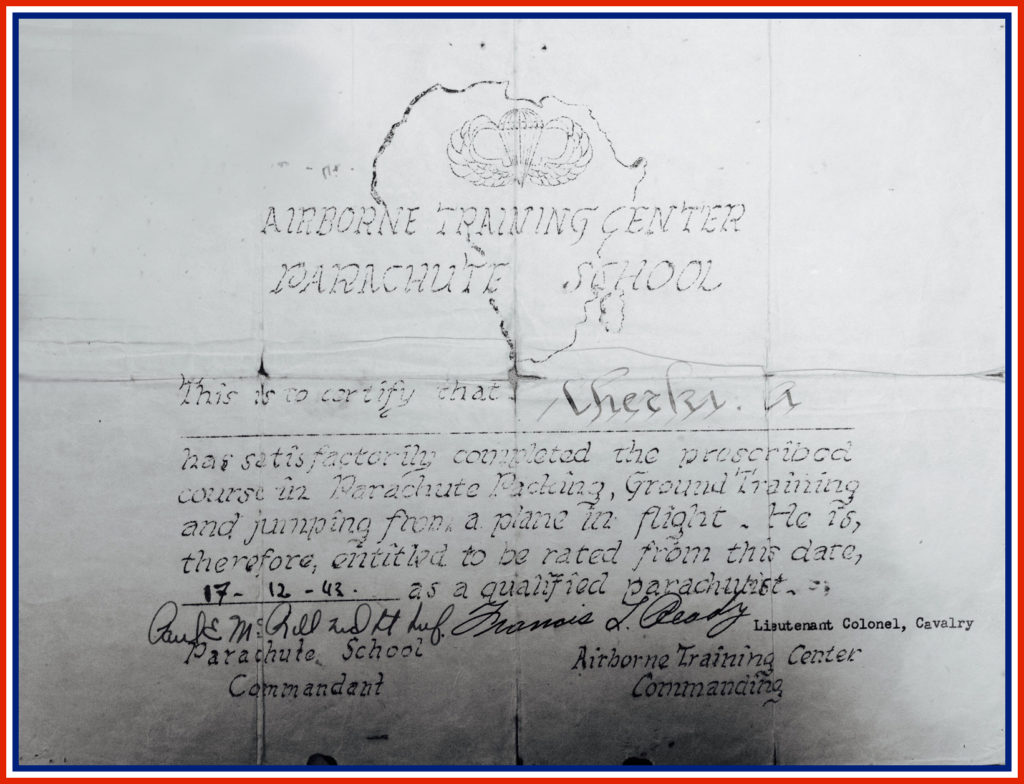 AIRBORNE TRAINING CENTER
PARACHUTE SCHOOL
This is to certify that Cherki. A
has satisfactorily completed the prescribed
course in Parachute Packing, Ground Training
and jumping from a plane in flight. He is,
therefore, entitled to be rated from this date,
17-12-43. as a qualified parachutist.
Paul E Mc 2nd Lt Inf. Francis L. Ready Lieutenant Colonel, Cavalry
Parachute School Airborne Training Center
Commandant Commanding